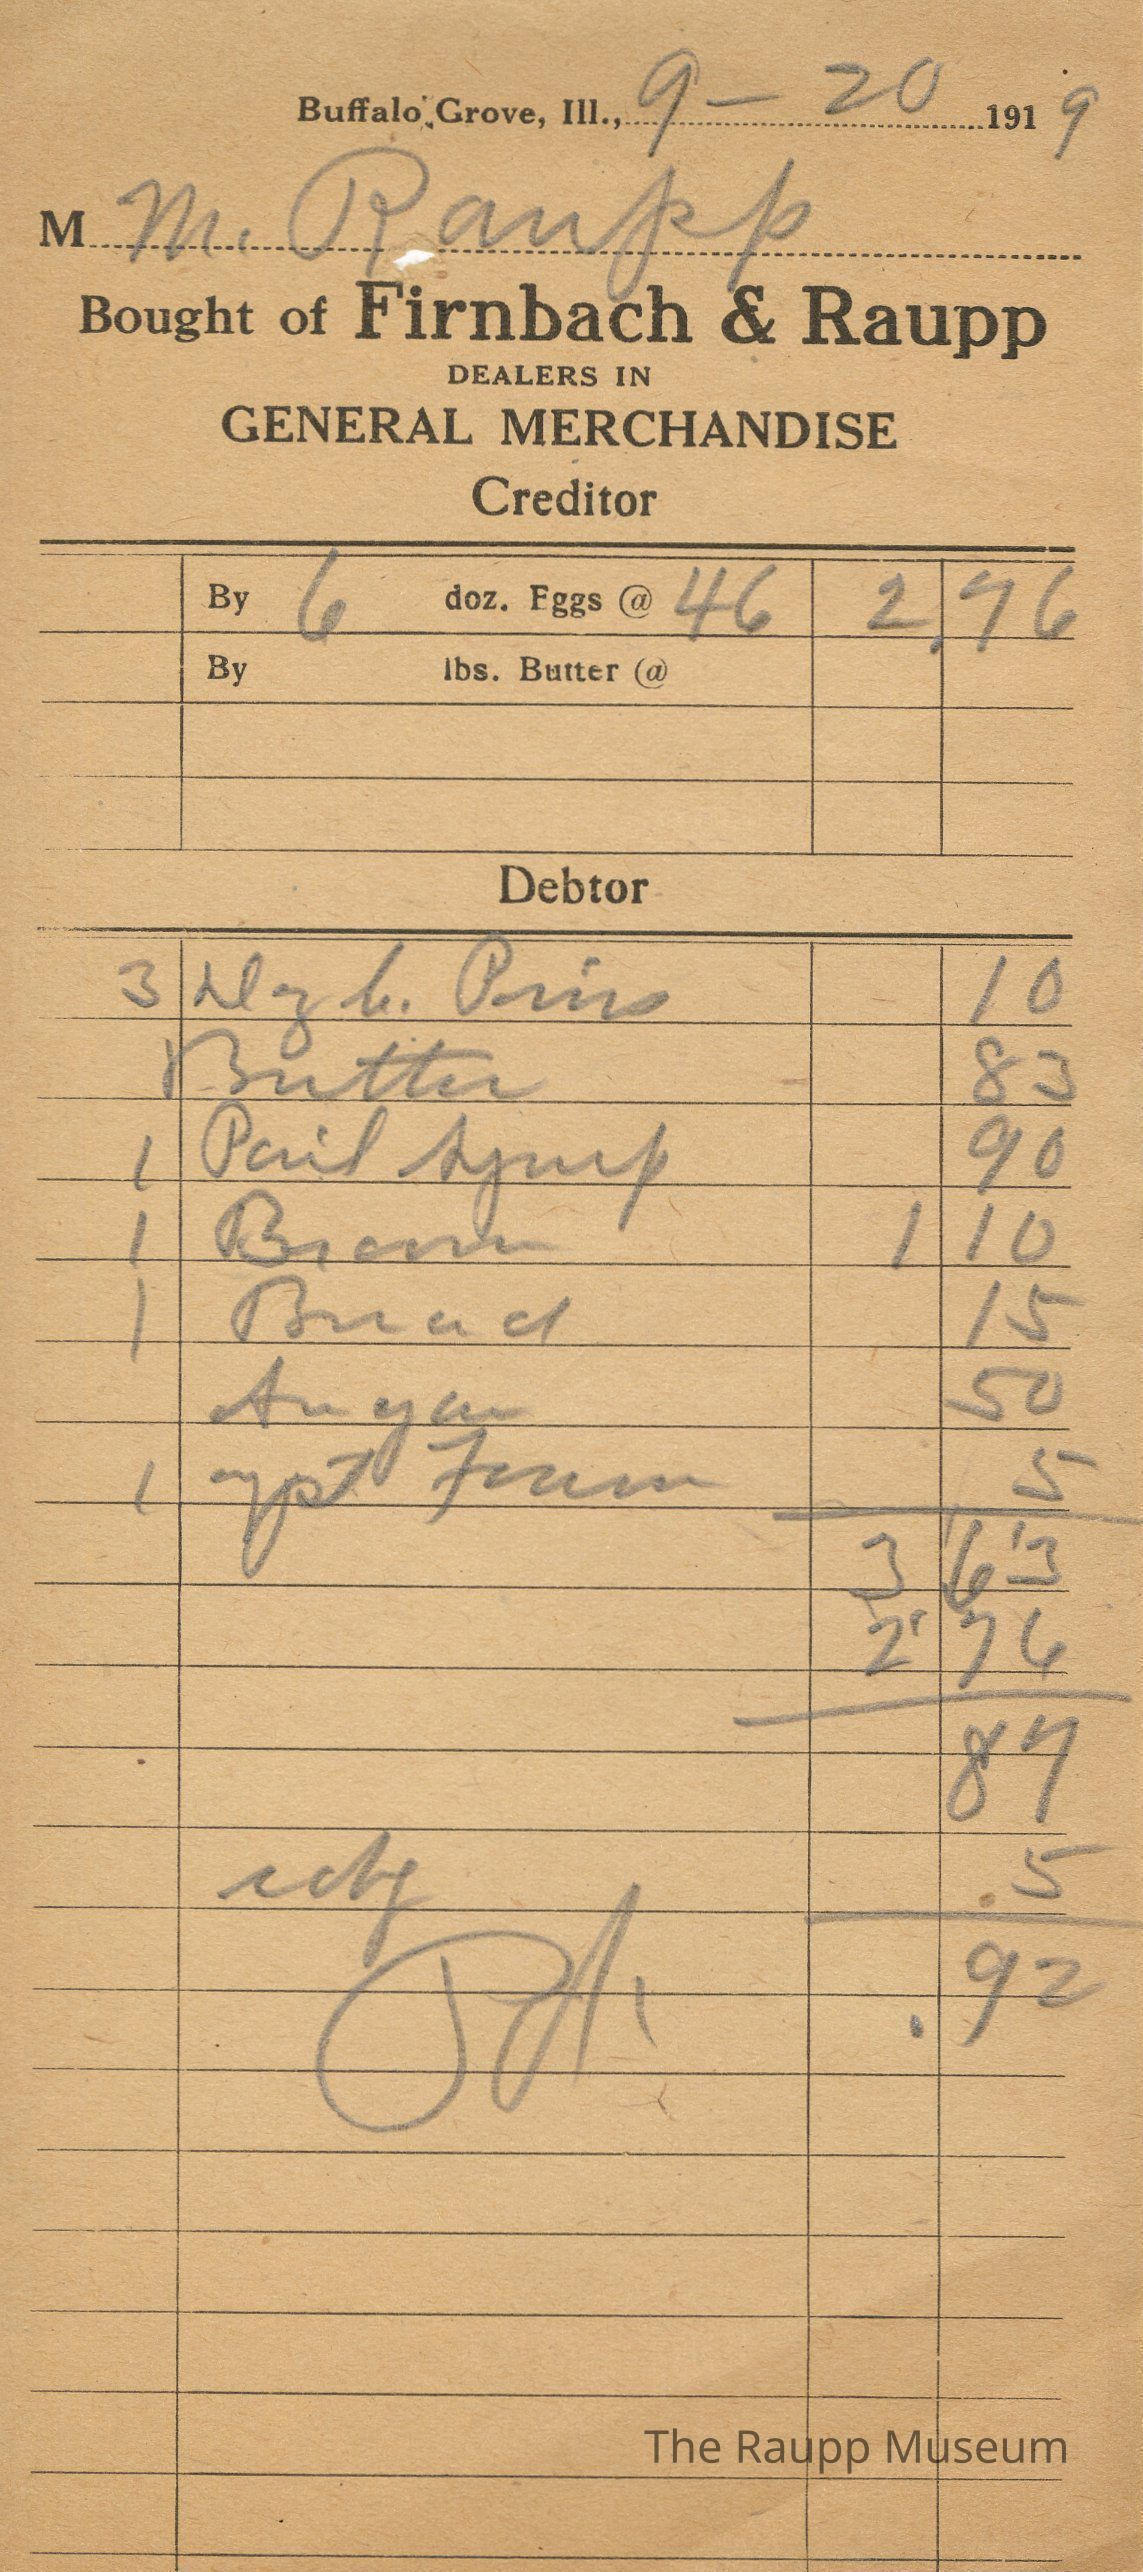 Buffalo Grove, Ill., 9 - 20 1919
M M. Raupp
Bought of Firnbach & Raupp
DEALERS IN
GENERAL MERCHANDISE
Creditor
By 6 doz. Eggs @ 46 2.76
By lbs. Butter @
Debtor
3 Dz b. Pins 10
1 Butter 83
1 Pail Syrup 90
1 Broom 1 10
1 Bread 15
Sugar 50
1 Foam 5
3 63
2 76
87
5
.92
The Raupp Museum